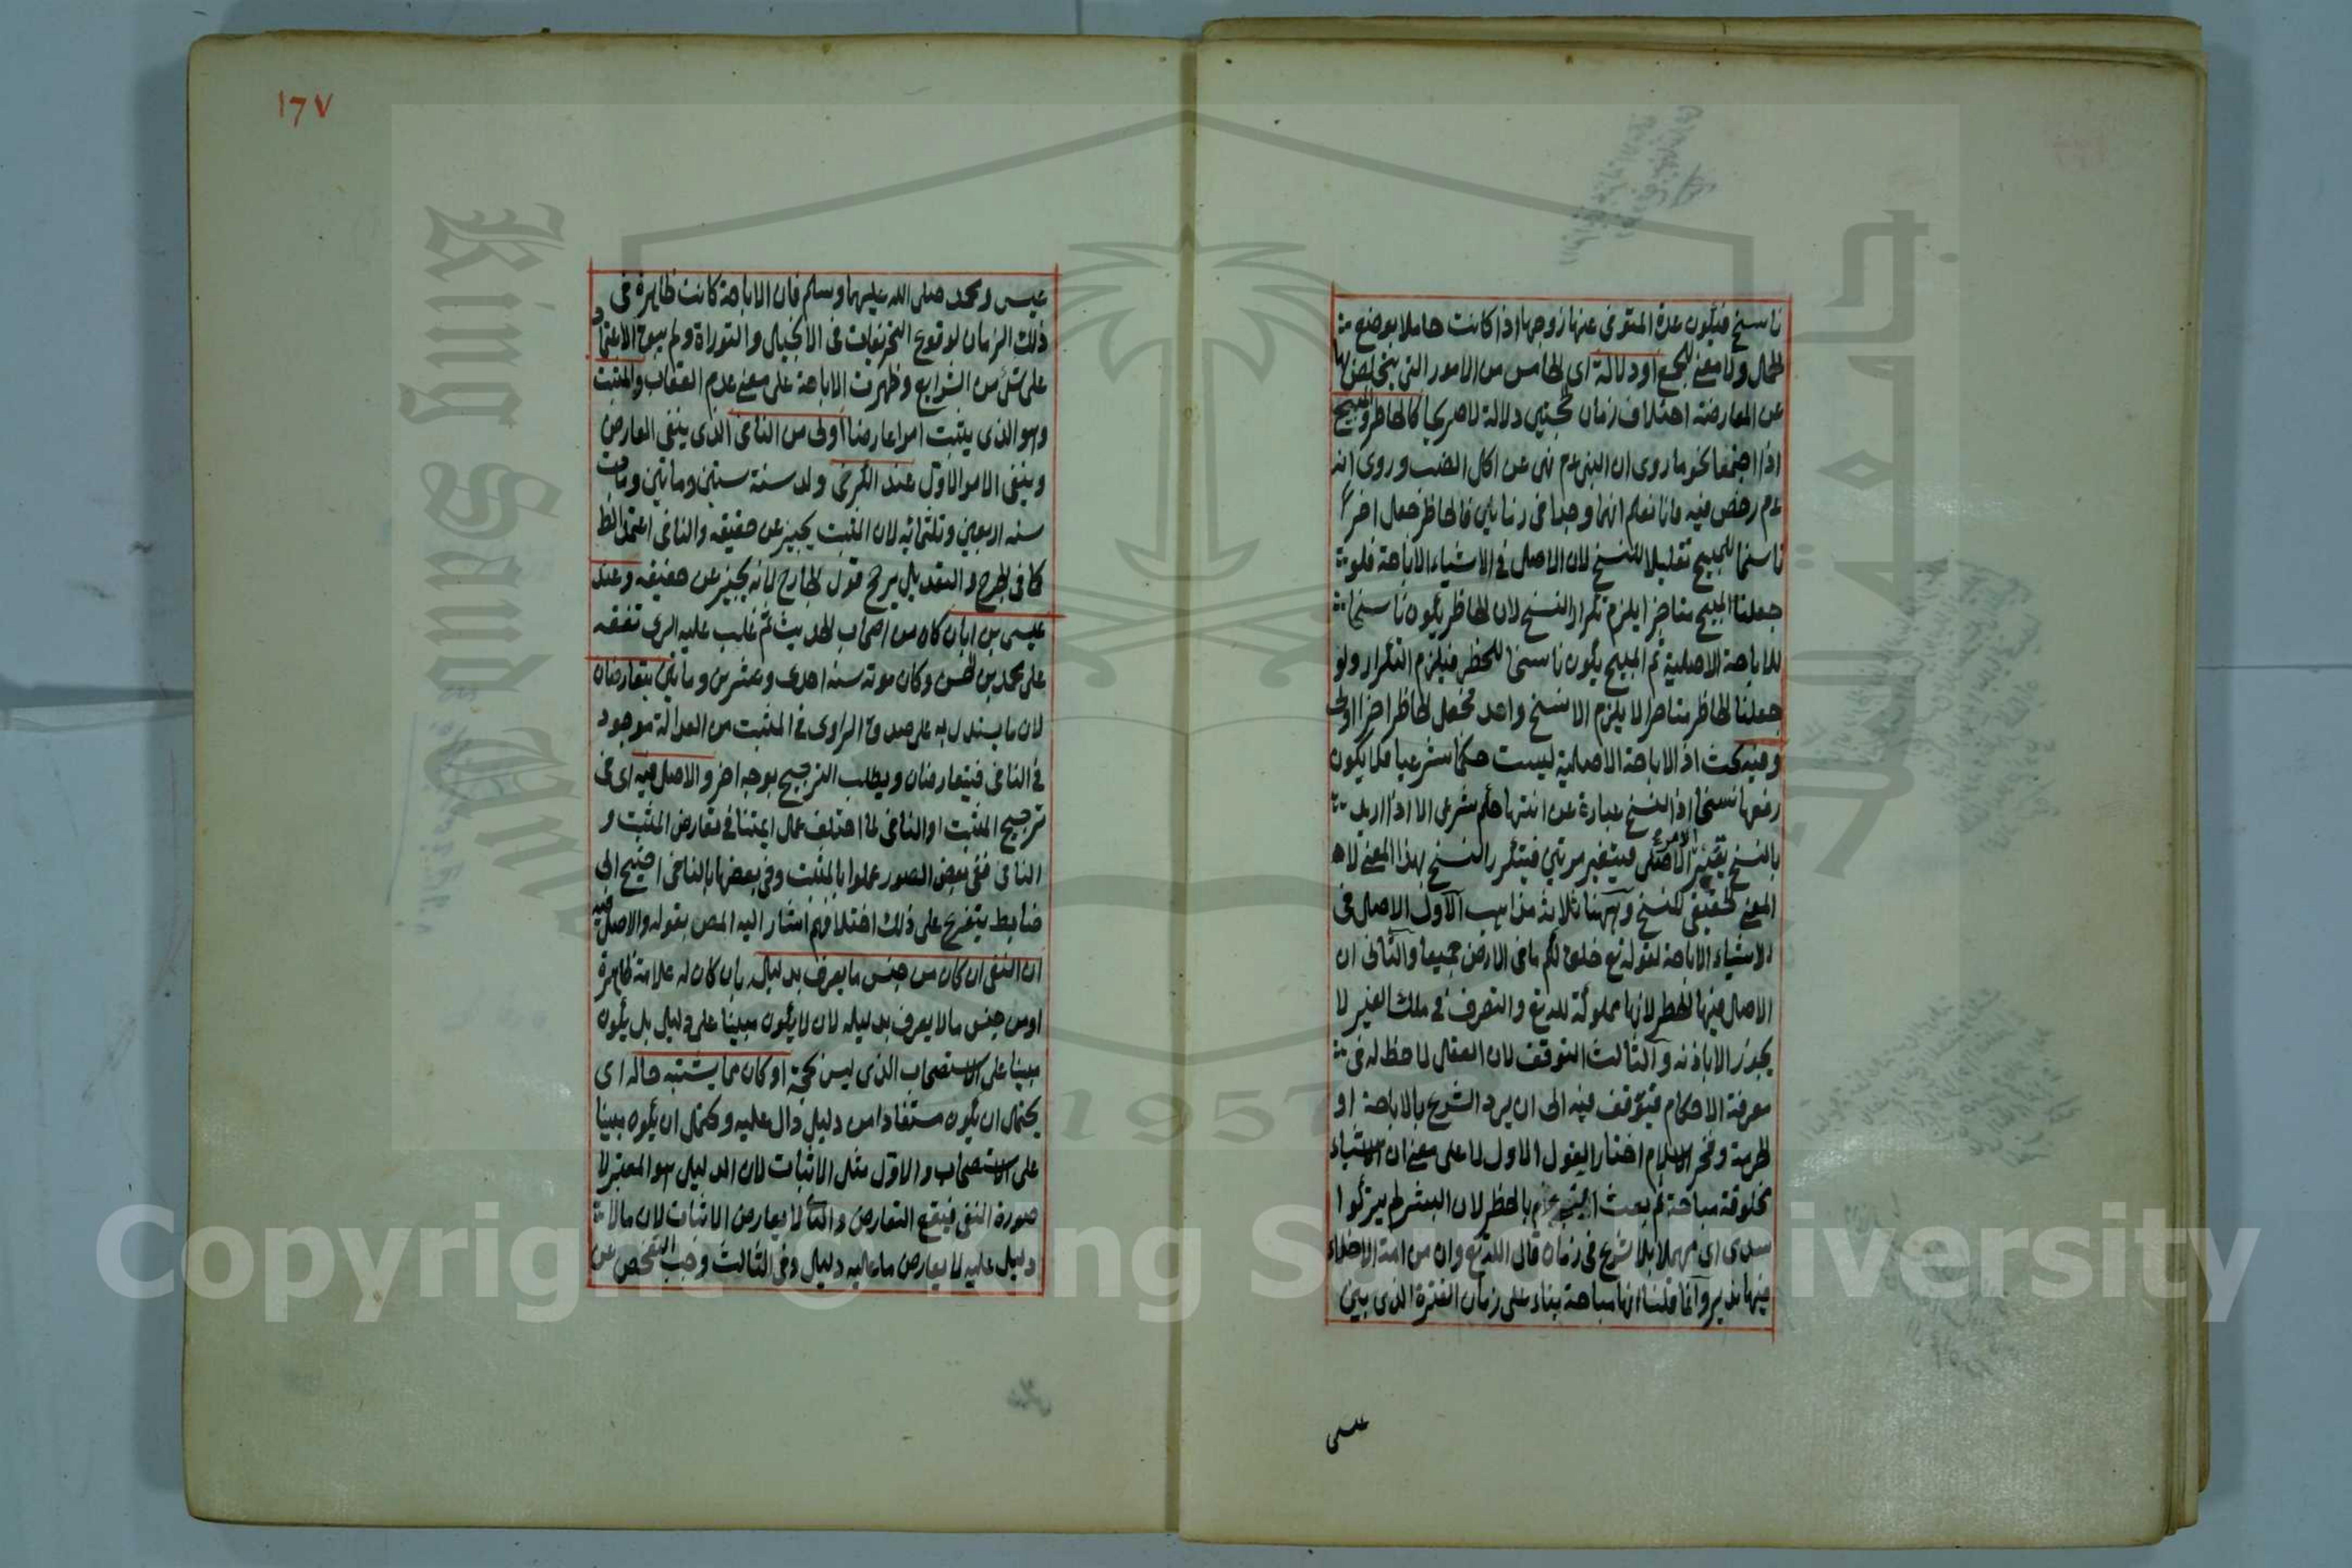 ناسخ فيكون عدة المتوفى عنها زوجها اذا كانت حاملا بوضع
الحمل ولا معنى للجمع او دلالة اى الخامس من الامور التى يتخلص بها
عن المعارضة اختلاف زمان الحجتين دلالة لا صريحا كالحاظر والمبيح
اذا اجتمعا كخو ما روى ان النبى عم نهى عن اكل الضب وروى انه
عم رخص فيه فانا نعلم انهما وجدا فى زمانين فالحاظر جعل اخرا
ناسخا للمبيح تقليلا للنسخ لان الاصل فى الاشياء الاباحة فلو
جعلنا المبيح متاخرا يلزم تكرار النسخ لان الحاظر يكون ناسخا
للاباحة الاصلية ثم المبيح يكون ناسخا للحظر فيلزم التكرار ولو
جعلنا الحاظر متاخرا لا يلزم الا نسخ واحد فجعل الحاظر اخرا اولى
وفيه بحث اذ الاباحة الاصلية ليست حكما شرعيا فلا يكون
رفعها نسخا اذ النسخ عبارة عن انتهاء حكم شرعى الا اذا اريد
بالنسخ تغيير الامر الاصلى فيتغير مرتين فيتكرر النسخ بهذا المعنى لا
المعنى الحقيقى للنسخ وههنا ثلاثة مذاهب الاول الاصل فى
الاشياء الاباحة لقوله تع خلق لكم ما فى الارض جميعا والثانى ان
الاصل فيها الحظر لانها مملوكة لله تع والتصرف فى ملك الغير لا
يجوز الا باذنه والثالث التوقف لان العقل لا حظ له فى
معرفة الاحكام فيتوقف فيه الى ان يرد الشرع بالاباحة او
الحرمة وفخر الاسلام اختار القول الاول لا على معنى ان الاشياء
مخلوقة مباحة ثم بعث النبى عم بالحظر لان البشر لم يتركوا
سدى اى مهملا بلا شرع فى زمان قال الله تع وان من امة الا خلا
فيها نذير وانما قلنا انها مباحة بناء على زمان الفترة الذى بين
عيسى
١٦٧
عيسى ومحمد صلى الله عليهما وسلم فان الاباحة كانت ظاهرة فى
ذلك الزمان لوقوع التحريفات فى الانجيل والتوراة ولم يبق الاعتماد
على شئ من الشرايع وظهرت الاباحة على معنى عدم العقاب والمثبت
وهو الذى يثبت امرا عارضا اولى من النافى الذى ينفى العارض
ويبقى الامر الاول عند الكرخى ولد سنة ستين ومأتين ومات
سنه اربعين وثلثمائه لان المثبت يخبر عن حقيقه والنافى اعتمد الظ
كما فى الجرح والتعديل يرجح قول الجارح لانه يخبر عن حقيقه وعند
عيسى بن ابان كان من اصحاب الحديث ثم غلب عليه الرى تفقه
على محمد بن الحسن وكان موته سنه احدى وعشرين ومأتين يتعارضان
لان ما يستدل به على صدق الراوى فى المثبت من العدالة موجود
فى النافى فيتعارضان ويطلب الترجيح بوجه اخر والاصل فيه اى فى
ترجيح المثبت او النافى لما اختلف عمل ايمتنا فى تعارض المثبت و
النافى ففى بعض الصور عملوا بالمثبت وفى بعضها بالنافى احتيج الى
ضابط يتفرع على ذلك اختلافهم اشار اليه المص بقوله والاصل فيه
ان النفى ان كان من جنس ما يعرف بدليله بان كان له علامة ظاهرة
او من جنس ما لا يعرف بدليله لان لا يكون مبينا على دليل بل يكون
مبينا على الاستصحاب الذى ليس بحجة او كان مما يشتبه حاله اى
يحتمل ان يكون مستفادا من دليل دال عليه وكتمل ان يكون مبينا
على الاستصحاب والاول مثل الاثبات لان الدليل هو المعتبر لا
صورة النفى فيقع التعارض والثا لا يعارض الاثبات لان ما لا
دليل عليه لا يعارض ما عليه دليل وفى الثالث وجب التفحص عن
King Saud University
جامعة الملك سعود
1957
Copyright © King Saud University